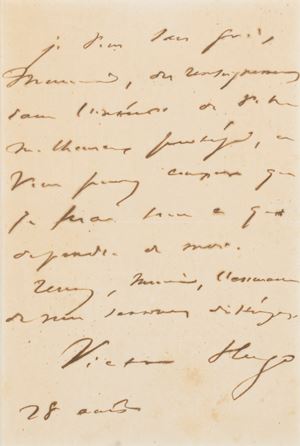 je vous sais gré,
Monsieur, des renseignements
dans l'intérêt de votre
malheureux protégé, et
Vous pouvez compter que
je ferai tout ce qui
dépendra de moi.
Recevez, Monsieur, l'assurance
de mes sentiments distingués
Victor Hugo
28 août